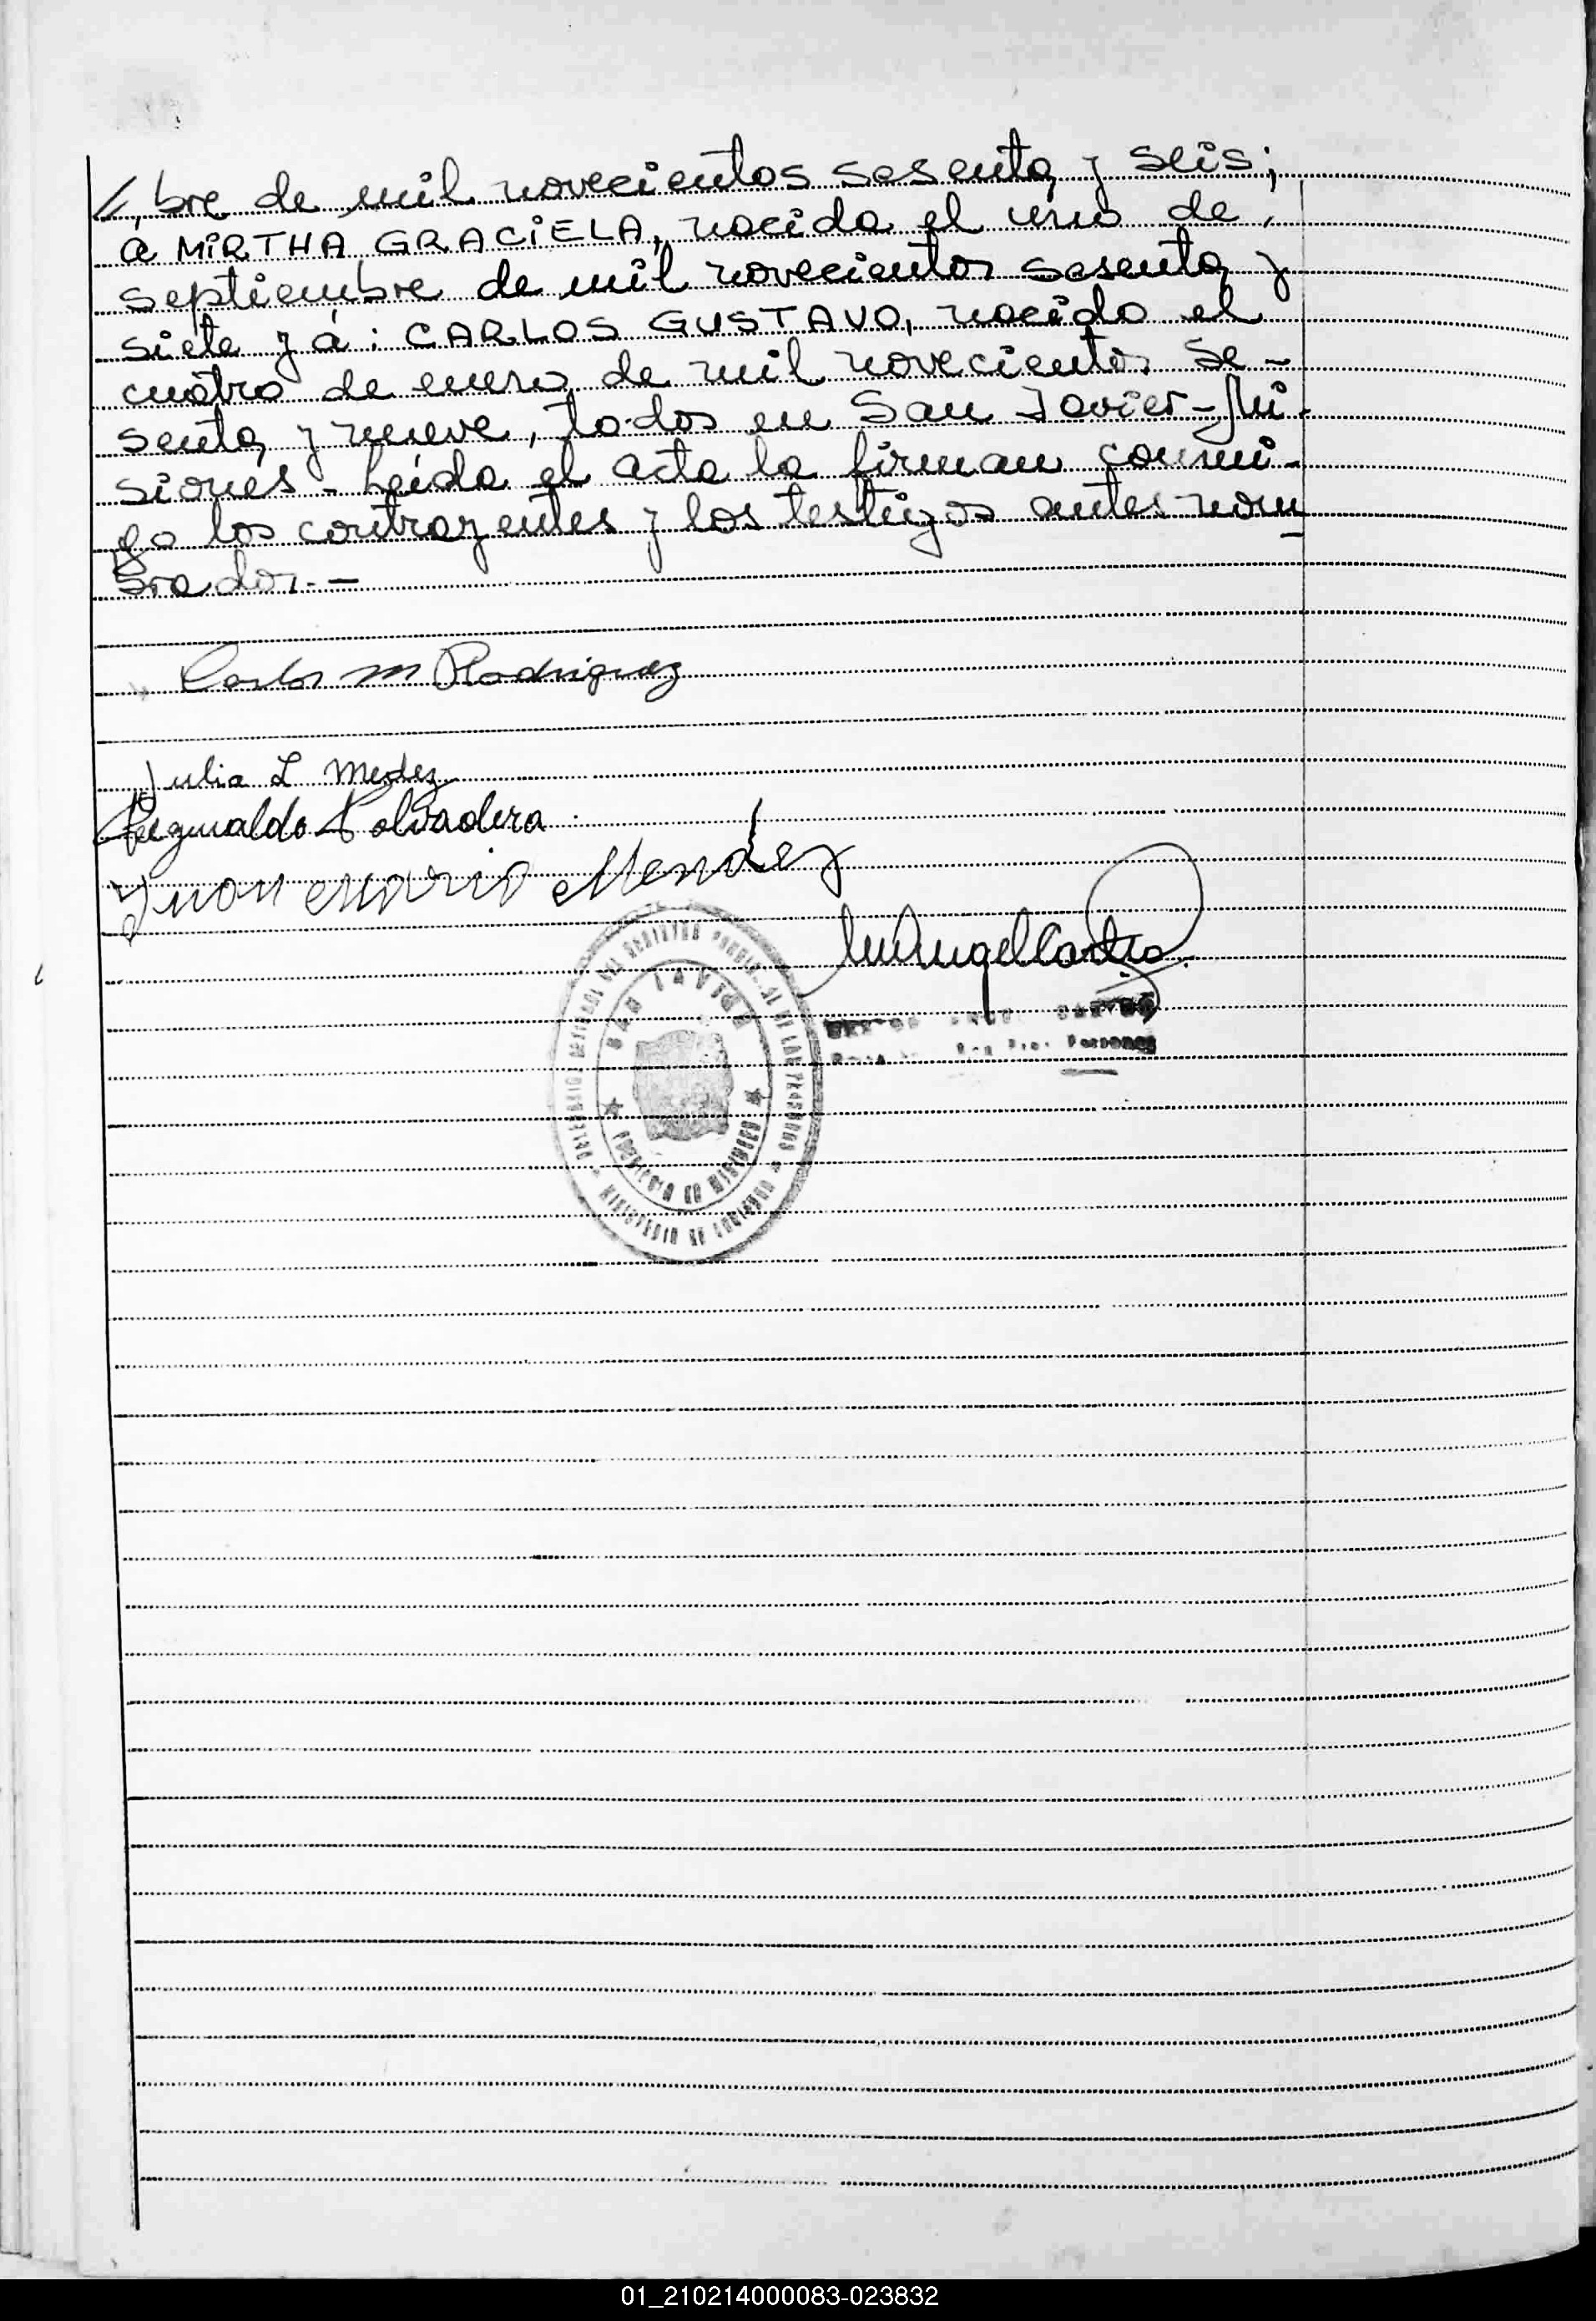 bre de mil novecientos sesenta y seis;
a MIRTHA GRACIELA, nacida el uno de
septiembre de mil novecientos sesenta y
siete y a: CARLOS GUSTAVO, nacido el
cuatro de enero de mil novecientos se-
senta y nueve, todos en San Javier-Mi-
siones- Leída el acta la firman conmi-
go los contrayentes y los testigos antes nom
brados.-
Carlos M Rodriguez
Julia L Medez
Reginaldo Polvadera
Juan Mario Mendez
SAN JAVIER
PROVINCIA DE MISIONES
MINISTERIO DE GOBIERNO
Personas
01_210214000083-023832